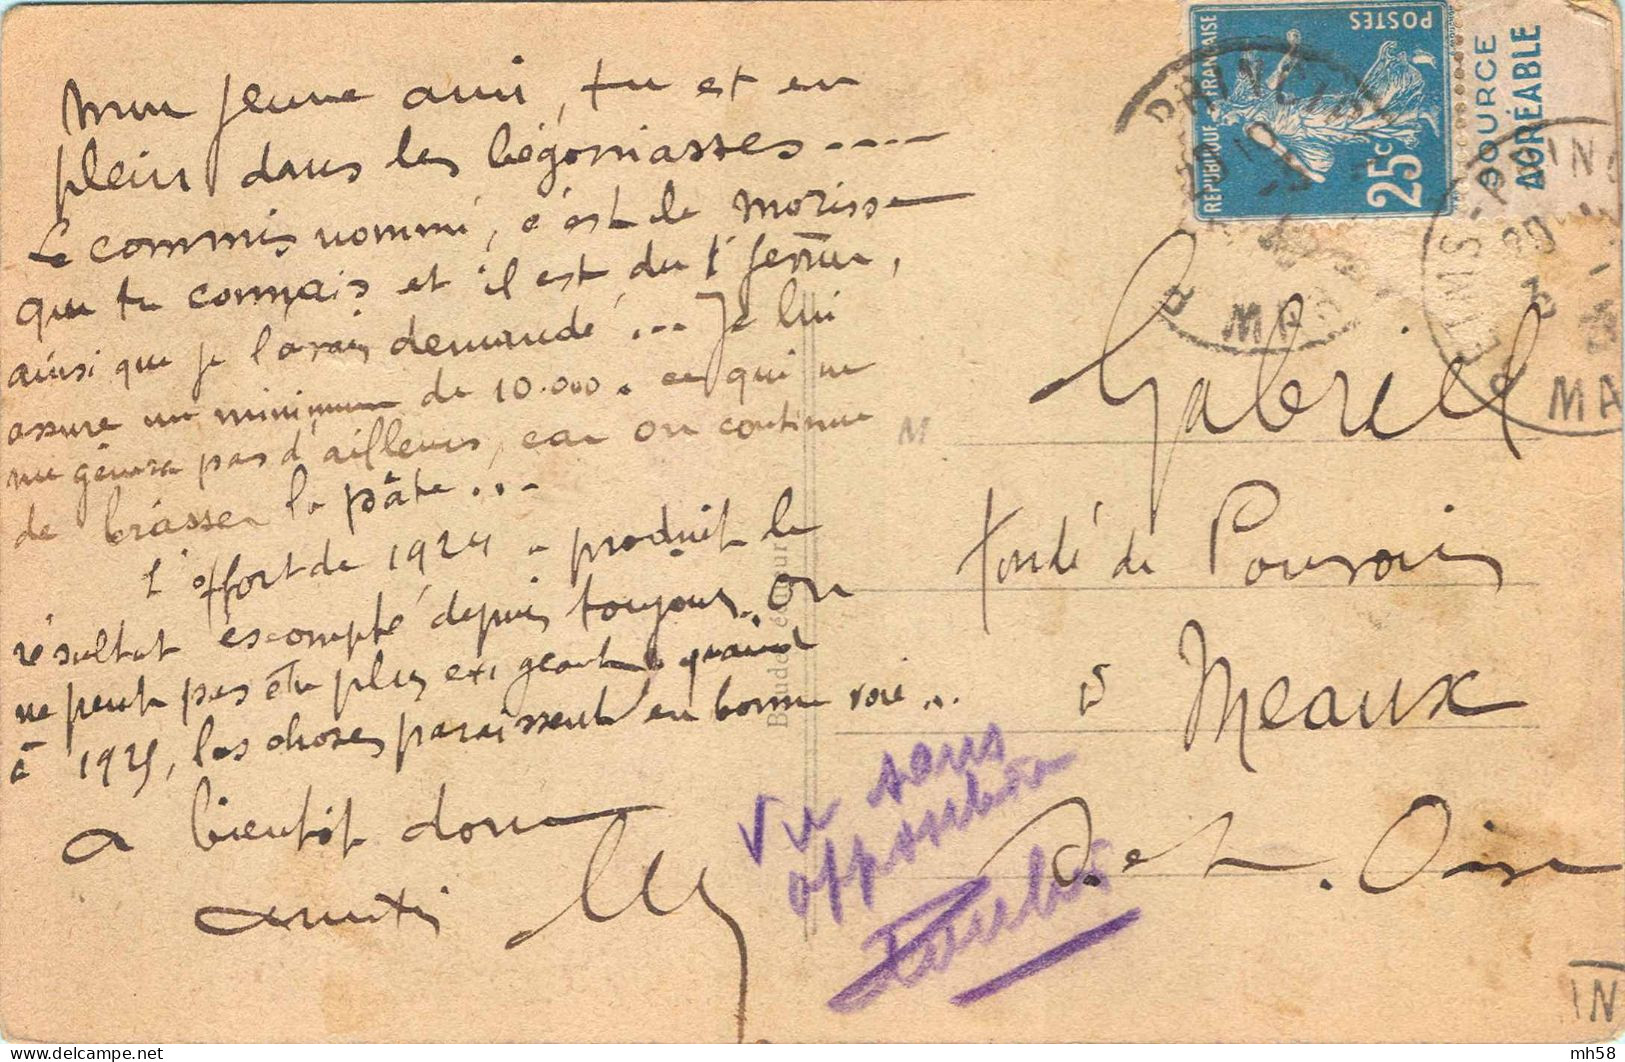 Mon jeune ami, tu et en
plein dans les bégoniasses ....
Le commis nommé, c'est le Morisse
que tu connais et il est du 1er ,
ainsi que je l'avais demandé ... Je lui
assure un minimum de 10.000. ce qui ne
me gênera pas d'ailleurs, car on continue
de brasser la pâte ...
L'effort de 1924 a produit le
résultat escompté depuis toujours. On
ne peut pas être plus exigeant quand
à 1925, les choses paraissent en bonne voie ...
A bientôt donc
amitiés
REPUBLIQUE FRANÇAISE
POSTES
25c
SOURCE
AGRÉABLE
REIMS
MARNE
MA
IN
Gabriel
Fondé de Pouvoirs
à Meaux
S. et M. Oise
Vu sans
opposition
mh58